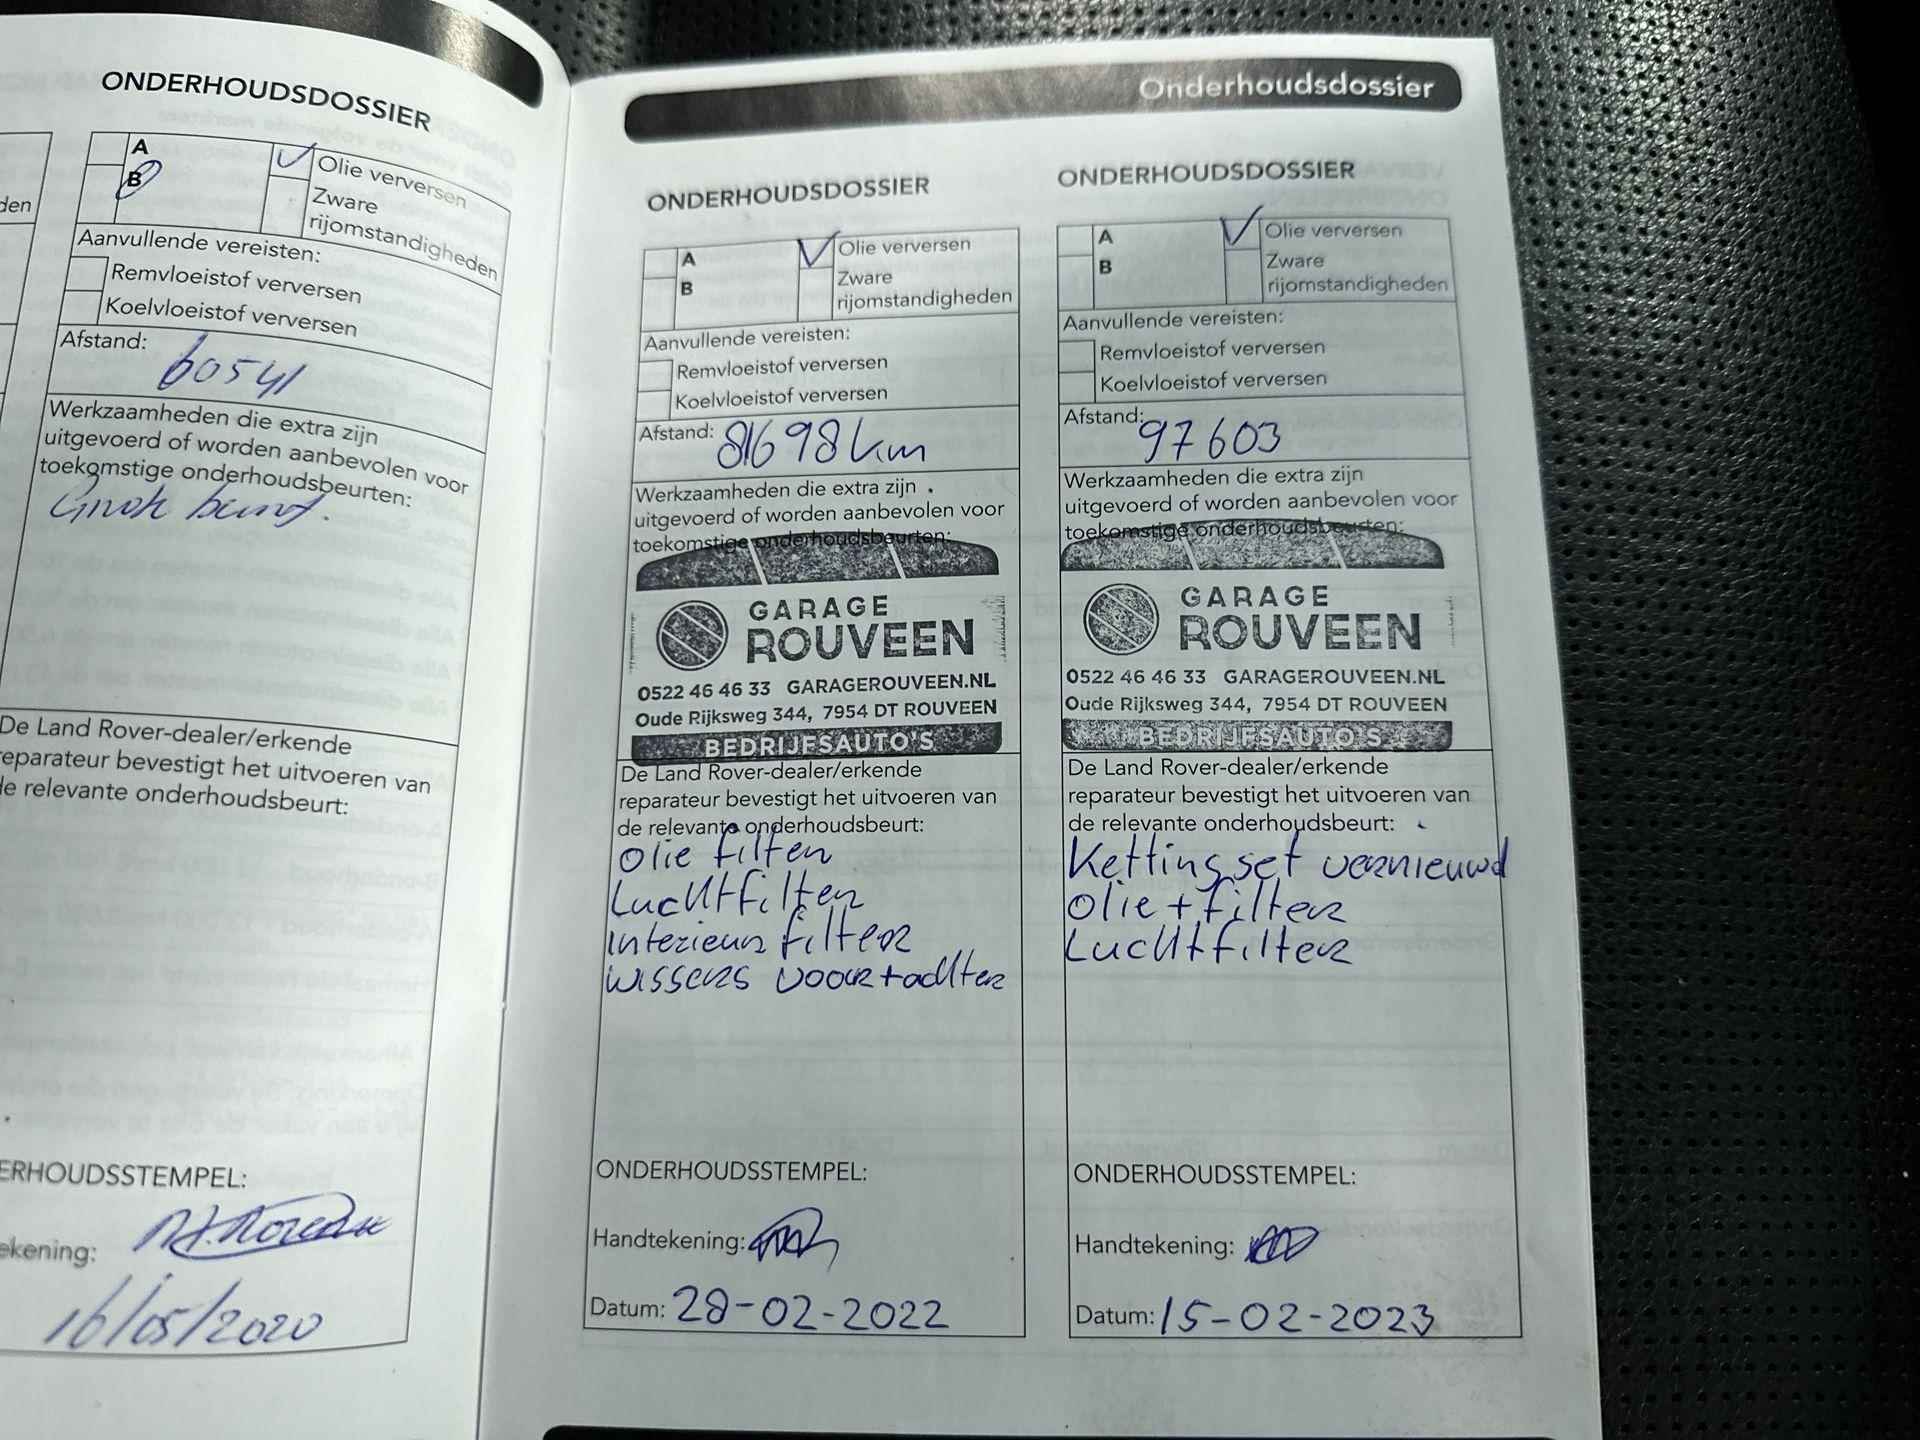 ONDERHOUDSDOSSIER
den
A
B
Olie verversen
Zware
rijomstandigheden
Aanvullende vereisten:
Remvloeistof verversen
Koelvloeistof verversen
Afstand:
60541
Werkzaamheden die extra zijn
uitgevoerd of worden aanbevolen voor
toekomstige onderhoudsbeurten:
De Land Rover-dealer/erkende
reparateur bevestigt het uitvoeren van
de relevante onderhoudsbeurt:
ERHOUDSSTEMPEL:
ekening:
16/05/2020
Onderhoudsdossier
ONDERHOUDSDOSSIER
A
B
Olie verversen
Zware
rijomstandigheden
Aanvullende vereisten:
Remvloeistof verversen
Koelvloeistof verversen
Afstand: 81698 km
Werkzaamheden die extra zijn
uitgevoerd of worden aanbevolen voor
toekomstige onderhoudsbeurten:
GARAGE
ROUVEEN
0522 46 46 33 GARAGEROUVEEN.NL
Oude Rijksweg 344, 7954 DT ROUVEEN
BEDRIJFSAUTO'S
De Land Rover-dealer/erkende
reparateur bevestigt het uitvoeren van
de relevante onderhoudsbeurt:
Olie filter
Luchtfilter
Interieur filter
wissers voor+achter
ONDERHOUDSSTEMPEL:
Handtekening:
Datum: 28-02-2022
ONDERHOUDSDOSSIER
A
B
Olie verversen
Zware
rijomstandigheden
Aanvullende vereisten:
Remvloeistof verversen
Koelvloeistof verversen
Afstand: 97603
Werkzaamheden die extra zijn
uitgevoerd of worden aanbevolen voor
toekomstige onderhoudsbeurten:
GARAGE
ROUVEEN
0522 46 46 33 GARAGEROUVEEN.NL
Oude Rijksweg 344, 7954 DT ROUVEEN
BEDRIJFSAUTO'S
De Land Rover-dealer/erkende
reparateur bevestigt het uitvoeren van
de relevante onderhoudsbeurt:
Ketting set vernieuwd
Olie + filter
Luchtfilter
ONDERHOUDSSTEMPEL:
Handtekening:
Datum: 15-02-2023